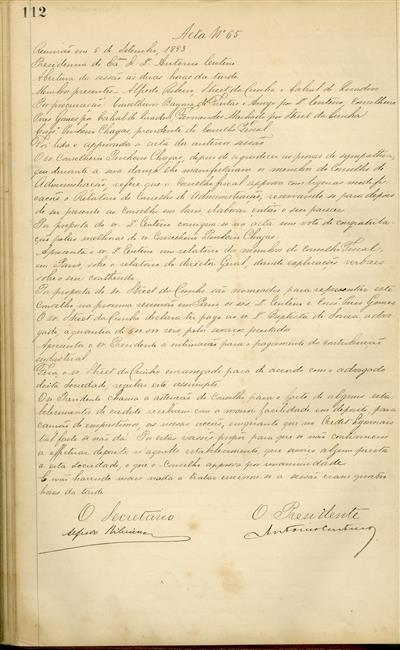 112
Acta Nº 65
Reunião em 5 de Setembro, 1893
Presidencia do Exmo Sr. Dr. Antonio Centeno
Abertura da sessão ás duas horas da tarde
Membros presentes Alfredo Ribeiro, Street da Cunha e Cabral de
Por procuração Conselheiro Dr. Centeno, Conselheiro
Gomes por Cabral de Fernandes Machado por Street da Cunha
Consº Pinheiro Chagas, presidente do Conselho Fiscal
Foi lida e approvada a acta da anterior sessão
O sr. Conselheiro Pinheiro Chagas, depois de agradecer as provas de sympathia,
que durante a sua doença lhe manifestaram os membros do Conselho de
Administração, refere que o Conselho fiscal approva com ligeiras modifi-
cações o Relatorio do Conselho de Administração, reservando-se para depois
de ser presente ao Conselho em Paris elaborar então o seu parecer
Por proposta do sr. Dr. Centeno consigna-se na acta um voto de congratula-
ção pelas melhoras do sr. Conselheiro Pinheiro Chagas
Apresenta o sr. Dr. Centeno um relatorio do membro do Conselho Fiscal,
em Paris, sobre o relatorio do director Geral, dando explicações verbaes
sobre o seu contheudo
Por proposta do sr. Street da Cunha são nomeados para representar este
Conselho na proxima reunião em Paris, os srs. Dr. Centeno e Gomes
O sr. Street da Cunha declara ter pago ao sr. Dr. Baptista de Sousa, advo-
gado, a quantia de reis pelo serviço prestado
Apresenta o sr. Presidente a intimação para o pagamento da contribuição
industrial
Fica o sr. Street da Cunha encarregado para de accordo com o advogado
desta Sociedade, regular este assumpto
O sr. Presidente chama a attenção do Conselho para o facto de alguns esta-
belecimentos de credito receberem com a maior facilidade em deposito para
caução de emprestimos, as nossas acções, emquanto que no Credit Lyonnais
tal facto se não dá. Por estas rasões propõe para que se não continuassem
a effectuar depositos n'aquelle estabelecimento, que serviço algum presta
a esta Sociedade, o que o Conselho approva por unanimidade
E, não havendo mais nada a tratar encerrou-se a sessão eram quatro
horas da tarde
O Secretario
O Presidente
Alfredo Ribeiro
Antonio Centeno